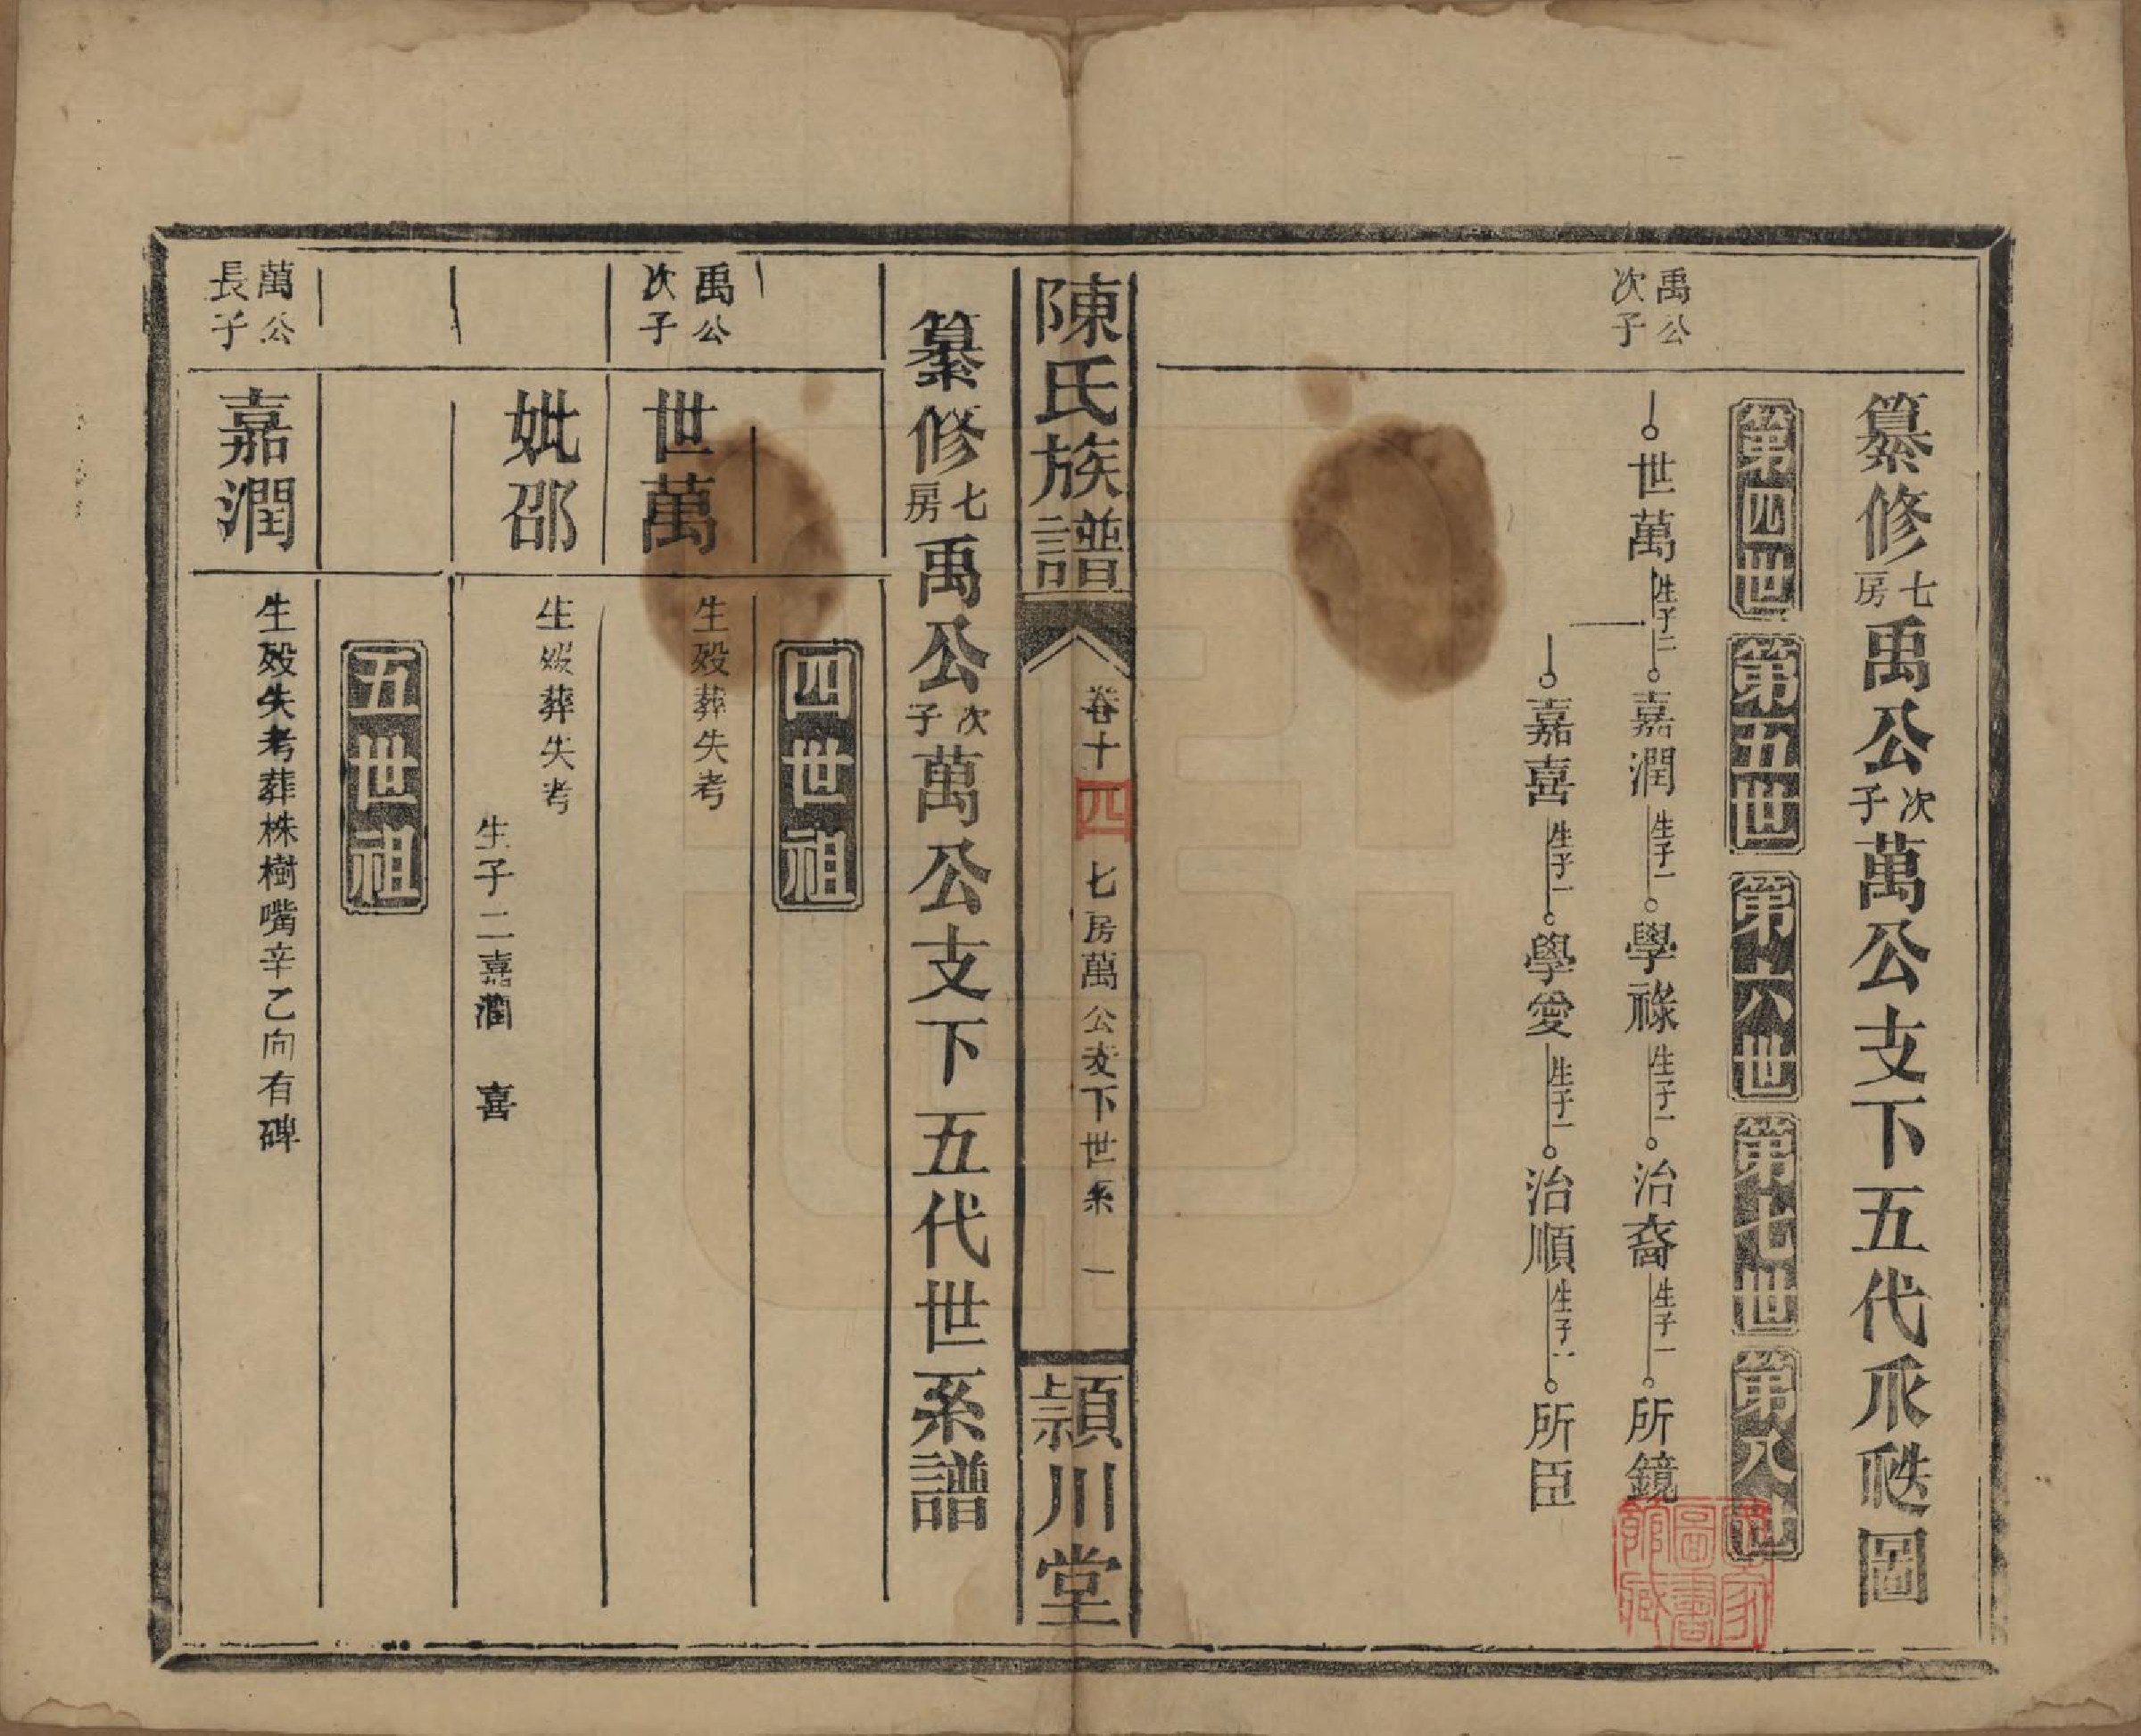 纂修七房禹公次子萬公支下五代𠂢𥘵圖
第四世
第五世
第六世
第七世
第八世
禹公次子
世萬生子二嘉潤生子一學祿生子一治裔生子一所鏡
嘉喜生子一學愛生子一治順生子一所臣
陳氏族譜
卷十四 七房萬公支下世系 一
頴川堂
纂修七房禹公次子萬公支下五代世系譜
四世祖
禹公次子
世萬
生殁葬失考
妣邵
生殁葬失考
生子二嘉潤 喜
五世祖
萬公長子
嘉潤
生殁失考葬株樹嘴辛乙向有碑